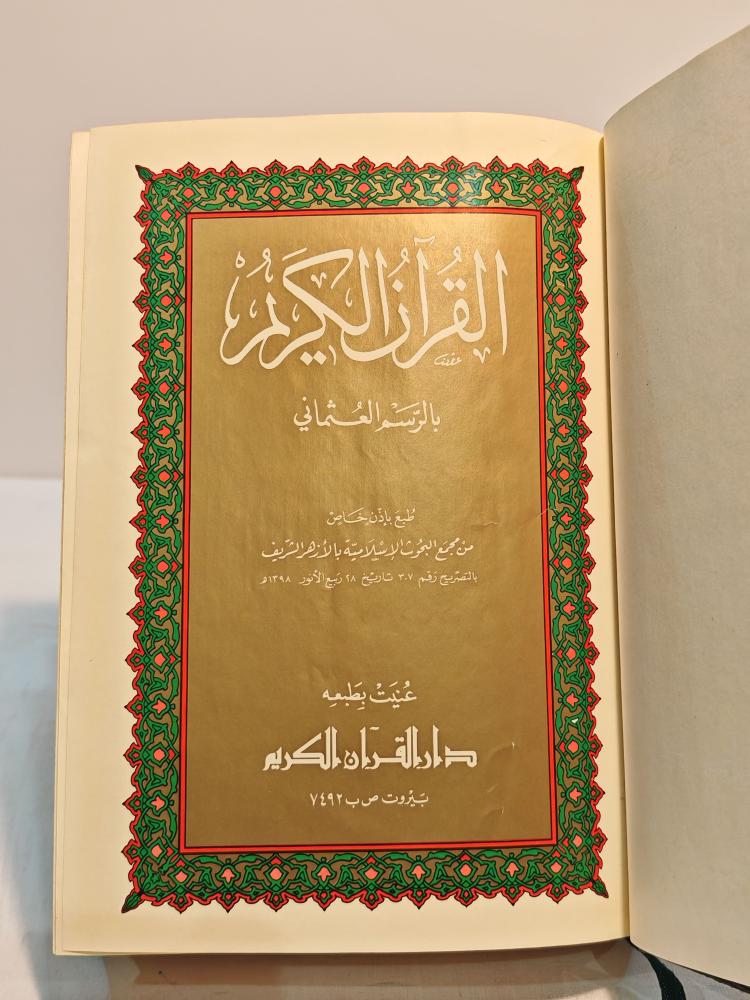 القُرآنُ الكَرِيمُ
بالرَّسْمِ العُثماني
طُبعَ بإذن خَاصّ
من مجمَع البحُوث الإسْلاميَّة بالأزهر الشَّريف
بالتصريح رَقم ٣٠٧ تاريخ ٢٨ ربيع الأنور ١٣٩٨ه
عُنيَتْ بِطَبعِه
دار القرآن الكريم
بَيْروت ص ب ٧٤٩٢